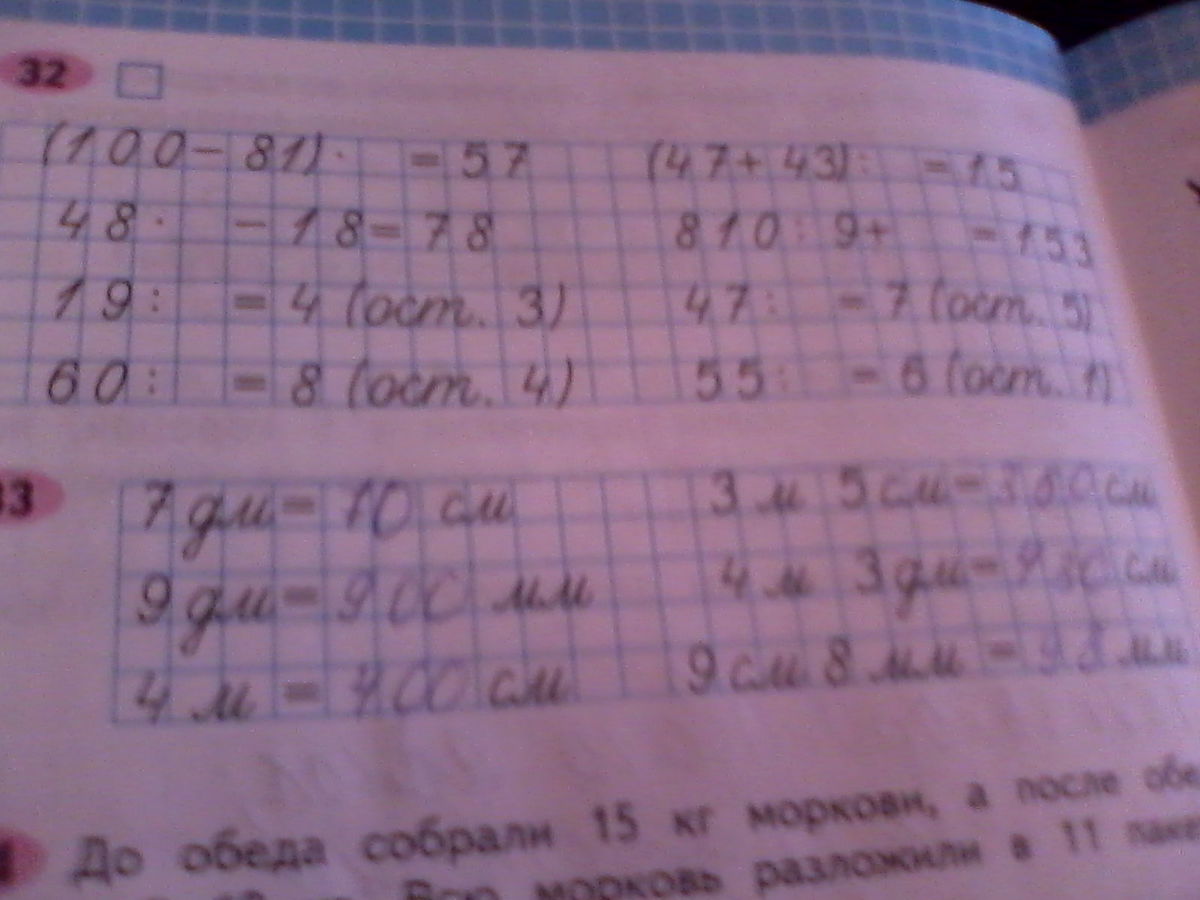 32
(100 − 81) · = 57 (47 + 43) : = 15
48 · − 18 = 78 810 : 9 + = 153
19 : = 4 (ост. 3) 47 : = 7 (ост. 5)
60 : = 8 (ост. 4) 55 : = 6 (ост. 1)
33
7 дм = 10 см 3 м 5 см = см
9 дм = 900 мм 4 м 3 дм = см
4 м = 400 см 9 см 8 мм = 98 мм
До обеда собрали 15 кг моркови, а после обе
Всю морковь разложили в 11 паке